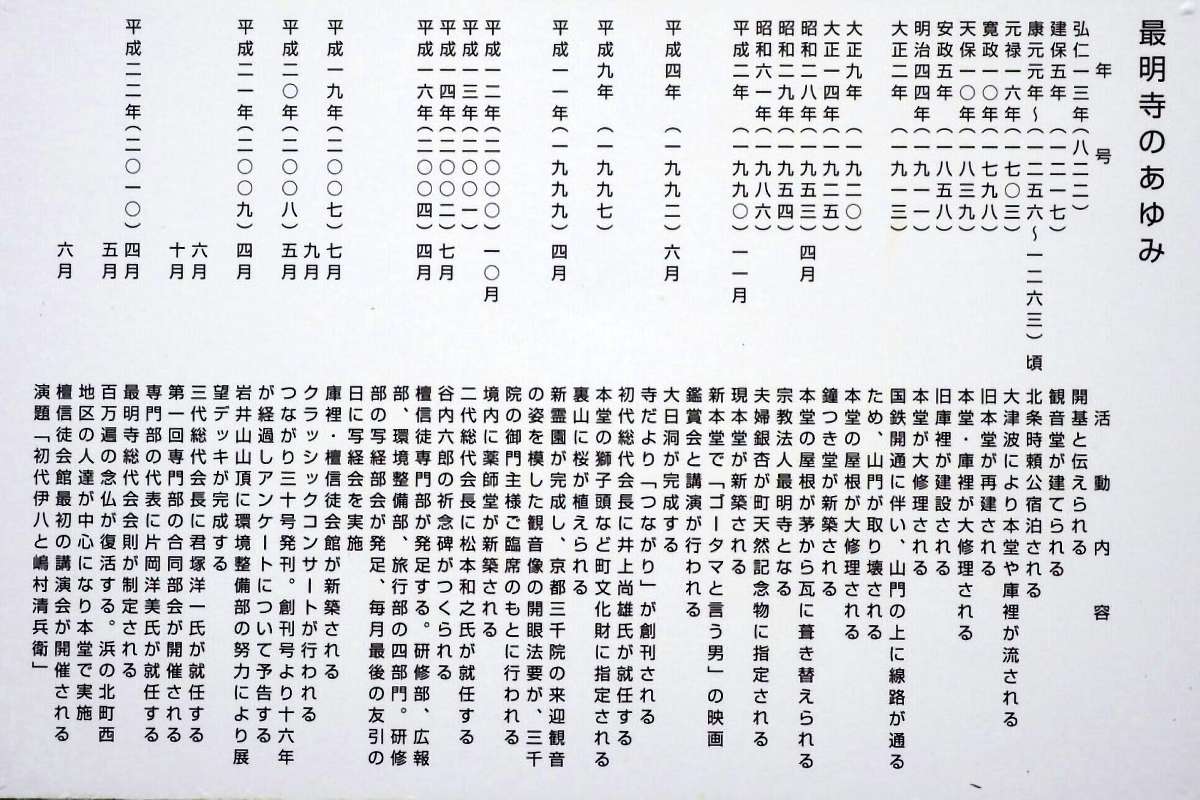 最明寺のあゆみ
年号　活動内容
弘仁一三年(八二二)　開基と伝えられる
建保五年(一二一七)　観音堂が建てられる
康元元年~(一二五六~一二六三)頃　北条時頼公宿泊される
元禄一六年(一七〇三)　大津波により本堂や庫裡が流される
寛政一〇年(一七九八)　旧本堂が再建される
天保一〇年(一八三九)　本堂・庫裡が大修理される
安政五年(一八五八)　旧庫裡が建設される
明治四四年(一九一一)　本堂が大修理される
大正二年(一九一三)　国鉄開通に伴い、山門の上に線路が通る
ため、山門が取り壊される
大正九年(一九二〇)　本堂の屋根が大修理される
大正一四年(一九二五)　鐘つき堂が新築される
昭和二八年(一九五三)四月　本堂の屋根が茅から瓦に葺き替えられる
昭和二九年(一九五四)　宗教法人最明寺となる
昭和六一年(一九八六)　夫婦銀杏が町天然記念物に指定される
平成二年(一九九〇)一一月　現本堂が新築される
新本堂で「ゴータマと言う男」の映画
鑑賞会と講演が行われる
平成四年(一九九二)六月　大日洞が完成する
寺だより「つながり」が創刊される
初代総代会長に井上尚雄氏が就任する
平成九年(一九九七)　本堂の獅子頭など町文化財に指定される
裏山に桜が植えられる
平成一一年(一九九九)四月　新霊園が完成し、京都三千院の来迎観音
の姿を模した観音像の開眼法要が、三千
院の御門主様ご臨席のもとに行われる
平成一二年(二〇〇〇)一〇月　境内に薬師堂が新築される
平成一三年(二〇〇一)　二代総代会長に松本和之氏が就任する
平成一四年(二〇〇二)七月　谷内六郎の祈念碑がつくられる
平成一六年(二〇〇四)四月　檀信徒専門部が発足する。研修部、広報
部、環境整備部、旅行部の四部門。研修
部の写経部会が発足、毎月最後の友引の
日に写経会を実施
平成一九年(二〇〇七)七月　庫裡・檀信徒会館が新築される
九月　クラッシックコンサートが行われる
平成二〇年(二〇〇八)五月　つながり三十号発刊。創刊号より十六年
が経過しアンケートについて予告する
平成二一年(二〇〇九)四月　岩井山山頂に環境整備部の努力により展
望デッキが完成する
六月　三代総代会長に君塚洋一氏が就任する
十月　第一回専門部の合同部会が開催される
専門部の代表に片岡洋美氏が就任する
平成二二年(二〇一〇)四月　最明寺総代会会則が制定される
五月　百万遍の念仏が復活する。浜の北町西
地区の人達が中心になり本堂で実施
六月　檀信徒会館最初の講演会が開催される
演題「初代伊八と嶋村清兵衛」